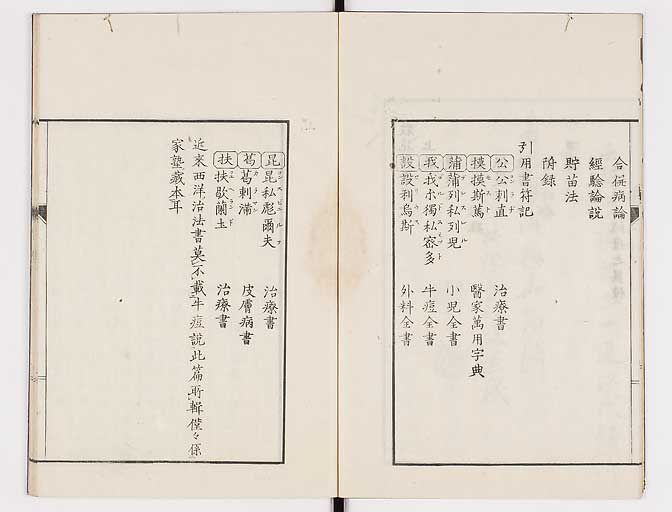 合併病論
經驗論説
貯苗法
附録
引用書符記
公 公刺直 治療書
摸 摸斯篤 醫家萬用字典
蒲 蒲列私列兒 小児全書
我 我爾獨私密多 牛痘全書
設 設利烏斯 外科全書
昆 昆私彪爾夫 治療書
葛 葛剌滿 皮膚病書
扶 扶歇蘭土 治療書
近来西洋治法書莫不載牛痘説此篇所輯僅々係
家塾蔵本耳